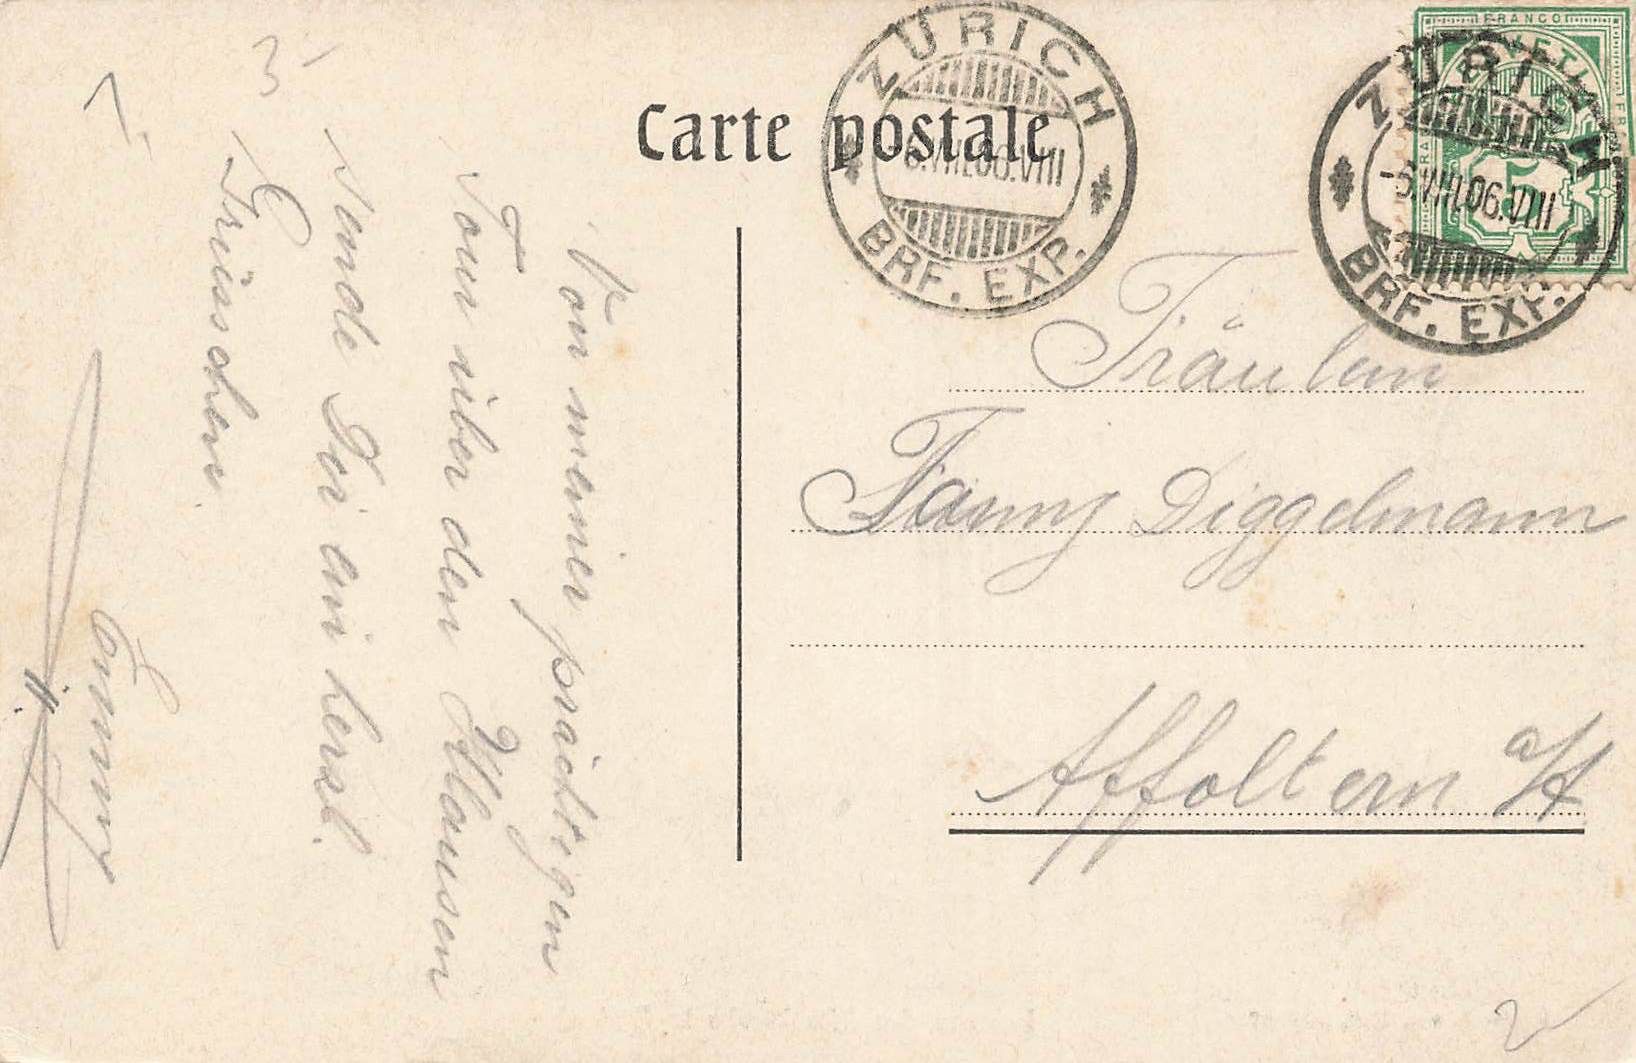 Carte postale
ZÜRICH
-6.VIII.06.VIII
BRF. EXP.
ZÜRICH
-6.VIII.06.VIII
BRF. EXP.
FRANCO
5
Fräulein
Fanny Diggelmann
Affoltern a/A
Von meiner prächtigen
Tour über den Klausen
sende Dir ein herzl.
Grüsschen.
Emmy
2